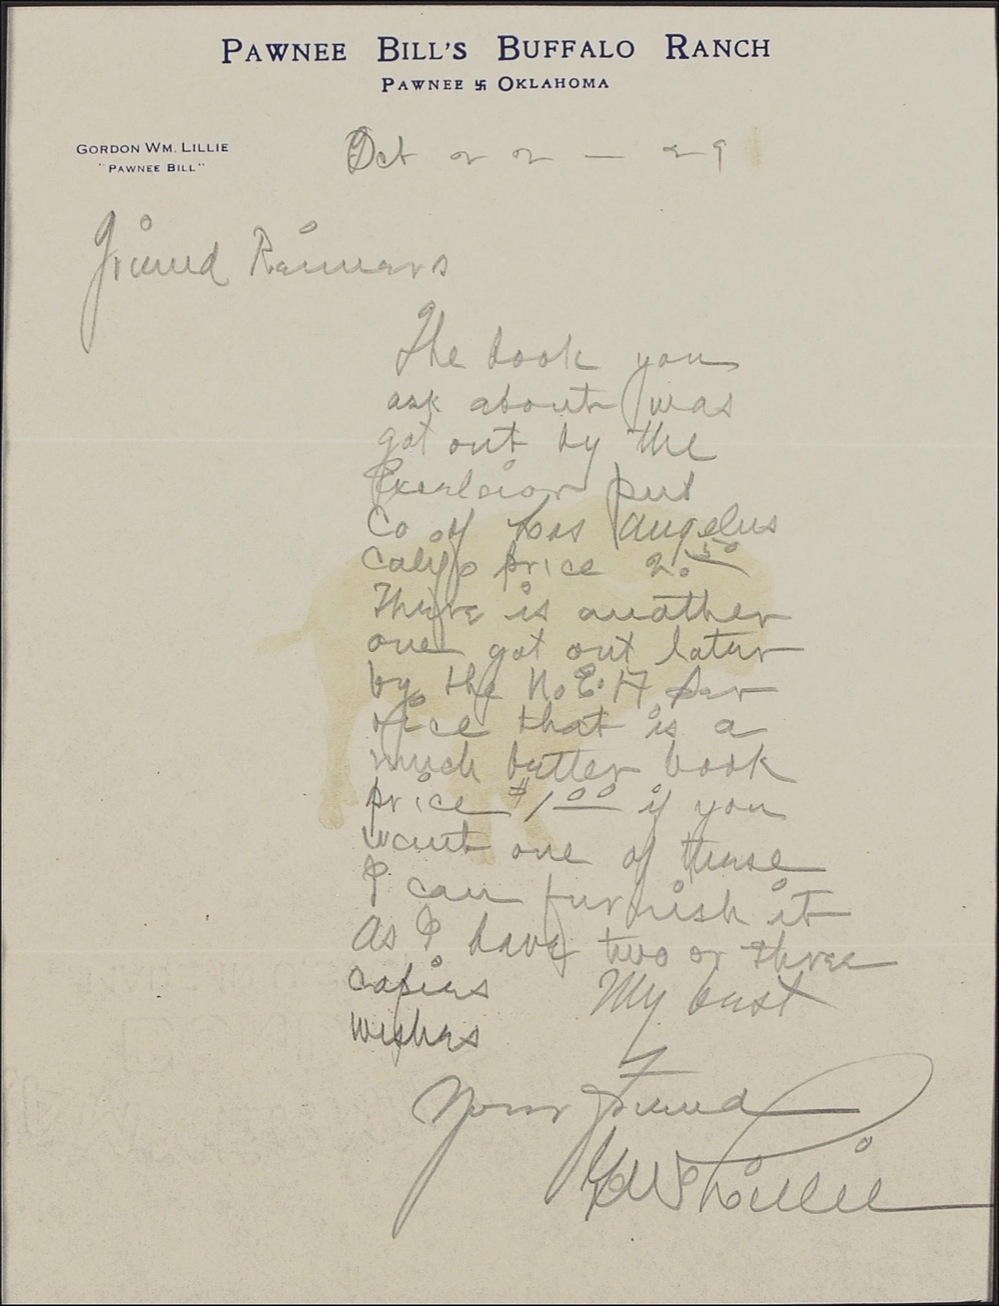 PAWNEE BILL'S BUFFALO RANCH
PAWNEE 卐 OKLAHOMA
GORDON WM. LILLIE
"PAWNEE BILL"
Oct 22 — 29
Friend Reimers
The book you
ask about was
got out by the
Excelsior put
Co of Los Angelus
Calif price 2.50
There is another
one got out later
by the N.E.A Ser
vice that is a
much better book
price $1.00 if you
want one of these
I can furnish it
As I have two or three
copies My best
wishes
Your Friend
G W Lillie